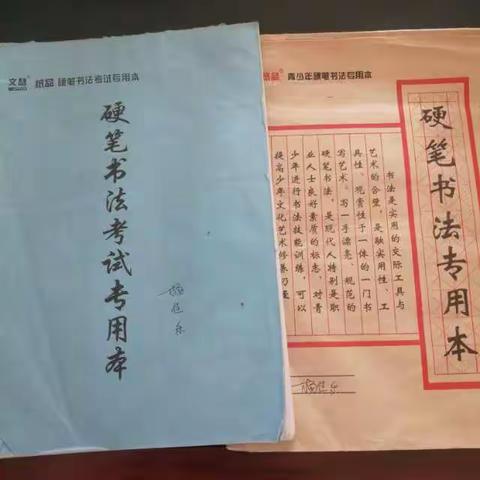 纸品 硬笔书法考试专用本
硬笔书法考试专用本
纸品 青少年硬笔书法专用本
硬笔书法专用本
书法是实用的交际工具与
艺术的合璧，是融实用性、工
具性、观赏性于一体的一门书
写艺术。写一手漂亮、规范的
硬笔书法，是现代人特别是职
业人士良好素质的标志，对青
少年进行书法技能训练，可以
提高少年文化艺术修养乃至